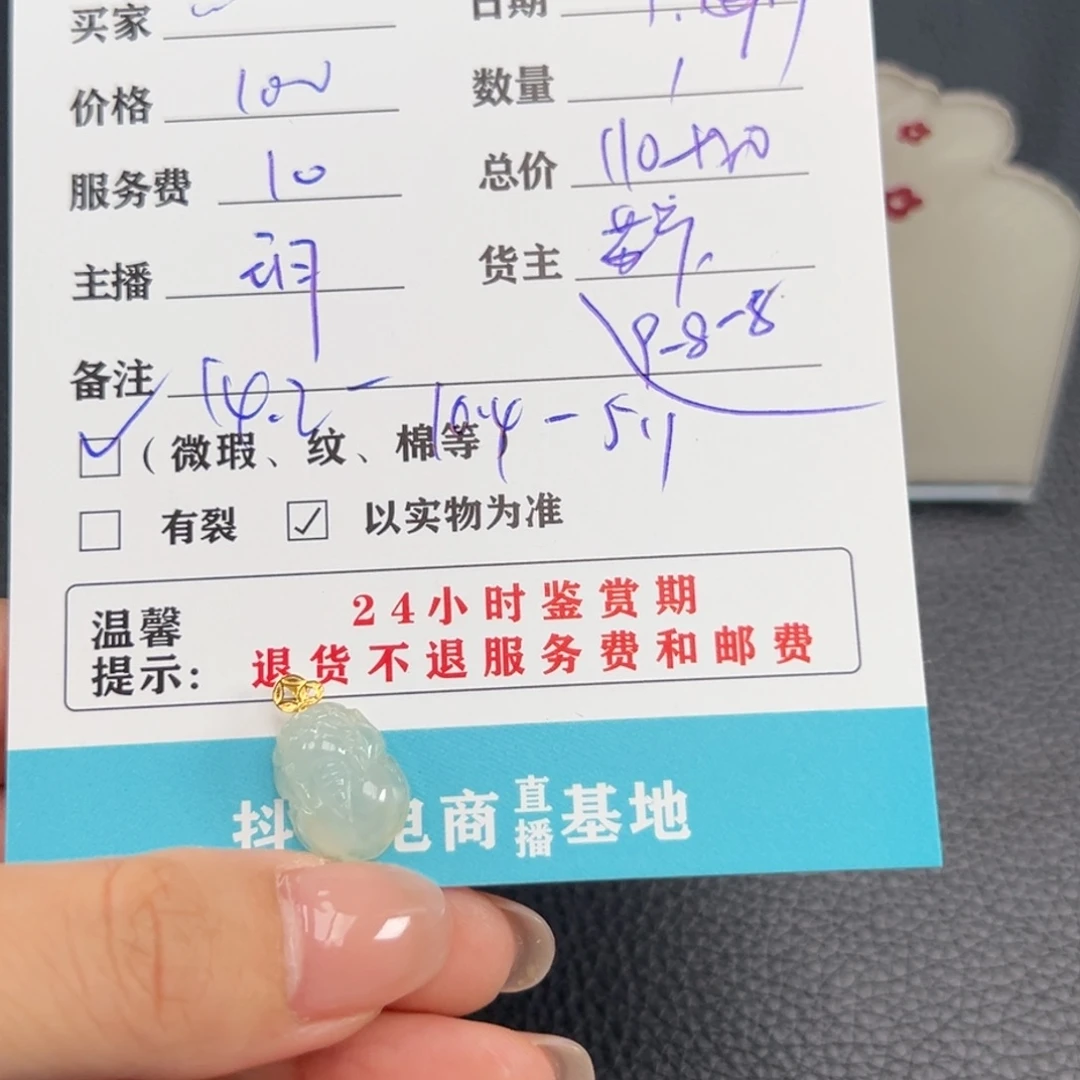 买家 日期
价格 100 数量 1
服务费 10 总价 110+20
主播 货主
9-8-8
备注 14.2-10.4-5.1
(微瑕、纹、棉等)
有裂 ✓ 以实物为准
温馨提示:
24小时鉴赏期
退货不退服务费和邮费
抖 电商直播基地